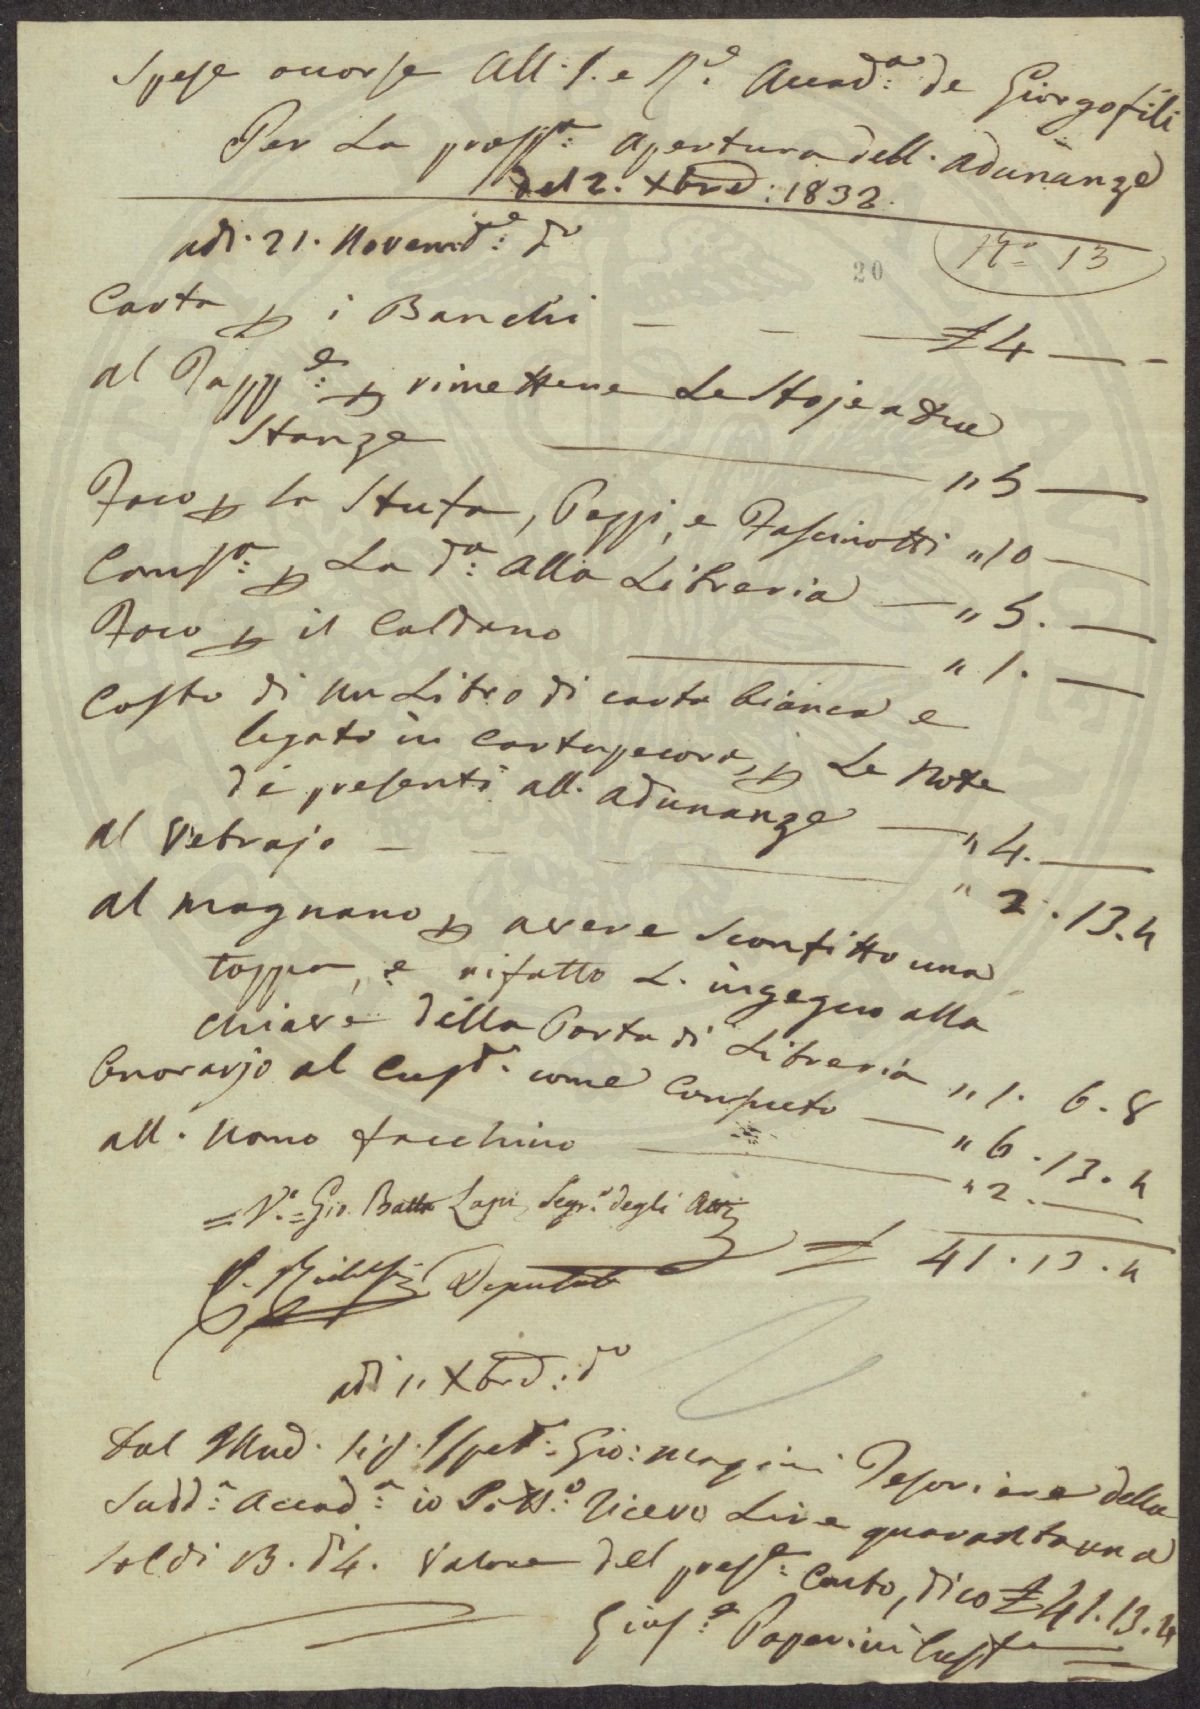 Spese occorse All' I. e R.e Accad.a de Giorgofili
Per La pross.a apertura dell. adunanze
del 2. Xbre: 1832.
adi. 21. Novemb.e d.o
N.o 13
20
Carta p i Banchi — — — £ 4 — -
al Tapp.e p rimettere Le Stoje a due
Stanze — " 5 —
Foco p la Stufa, Pezzi, e Fascinotti " 10 —
Comp.a p La d.a alla Libreria — " 5. —
Foco p il Caldano — " 1. —
Costo di un Libro di carta bianca e
legato in Cartapecora, p Le Note
di presenti all. adunanze — " 4. —
al Vetrajo — — — " 2. 13. 4
al magnano p avere sconfitto una
toppa, e rifatto L. ingegno alla
chiave della Porta di Libreria " 1. 6. 8
Onorarjo al Cust.e come Consueto — " 6. 13. 4
all. Uomo facchino — " 2. —
= V.o = Gio. Batta Lapi, Segr.o degli Atti
£ 41. 13. 4
Deputato
adi 1. Xbre: d.o
Dal Sig. Gio: Magini Tesoriere della
Sudd.a Accad.a io Sott.o Ricevo Lire quarantauna
soldi 13. d. 4. Valore del pres.e Conto, dico £ 41. 13. 4
Gius.e Paperini Cust.e